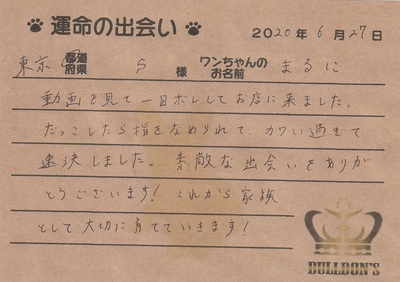 運命の出会い
2020年6月27日
東京 都道府県 S 様 ワンちゃんのお名前 まるに
動画を見て一目ボレしてお店に来ました。
だっこしたら指をなめられて、カワい過ぎて
速決しました。素敵な出会いをありが
とうございます! これから家族
として大切に育てていきます!
BULLDON'S